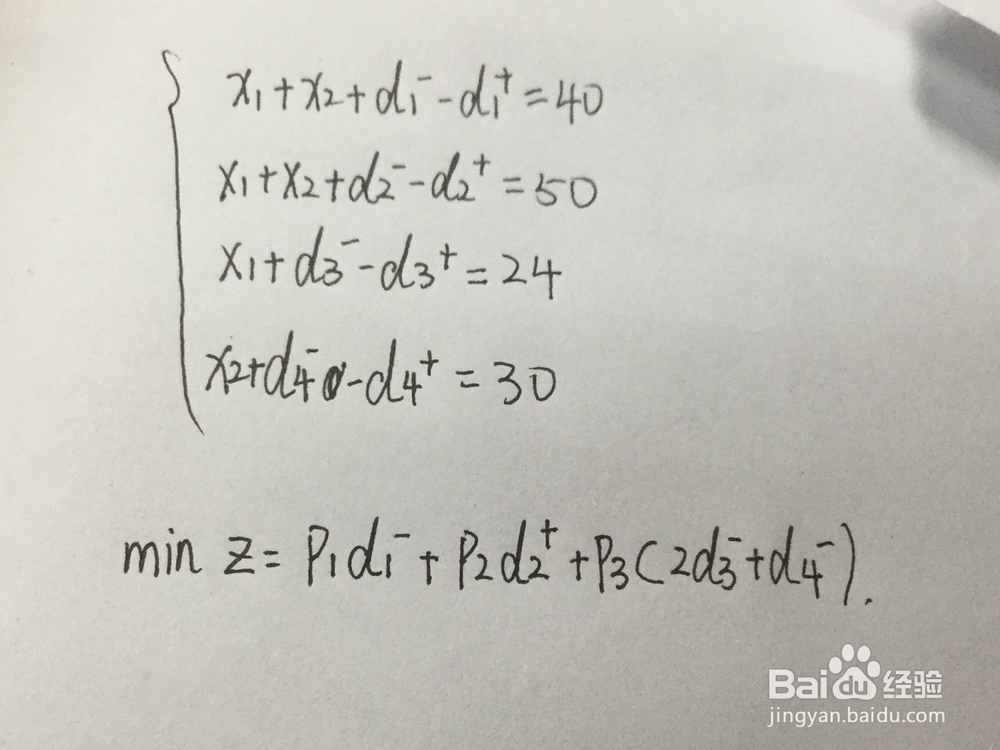 x₁+x₂+d₁⁻-d₁⁺=40
x₁+x₂+d₂⁻-d₂⁺=50
x₁+d₃⁻-d₃⁺=24
x₂+d₄⁻-d₄⁺=30
min z=P₁d₁⁻+P₂d₂⁺+P₃(2d₃⁻+d₄⁻).
Baidu经验
jingyan.baidu.com